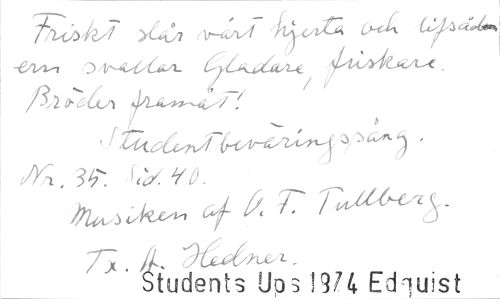 Friskt slår vårt hjerta och lifsåd
ern svallar Gladare, friskare.
Bröder framåt!
Studentbeväringssång.
Nr. 35. Sid. 40.
Musiken af O. F. Tullberg.
Tx. A. Hedner.
Students Ups 1874 Edquist